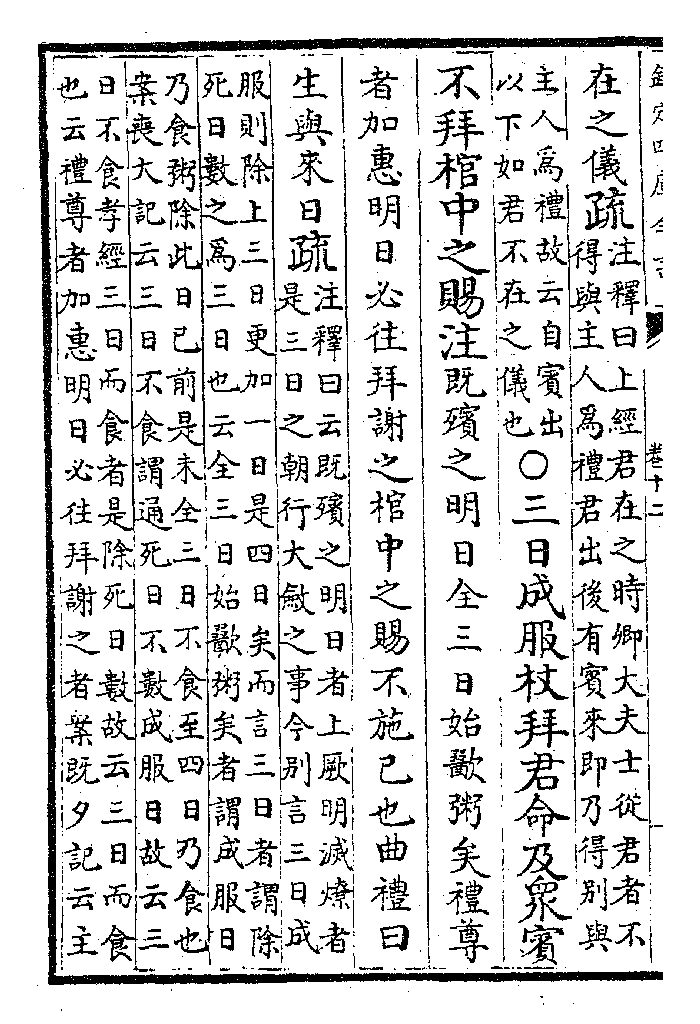 欽定四庫全書
卷十二
在之儀疏
注釋曰上經君在之時卿大夫士從君者不
得與主人為禮君出後有賓來即乃得別與
主人為禮故云自賓出
以下如君不在之儀也
○三日成服杖拜君命及衆賓
不拜棺中之賜注既殯之明日全三日始歠粥矣禮尊
者加惠明日必往拜謝之棺中之賜不施已也曲禮曰
生與來日疏
注釋曰云既殯之明日者上厥明滅燎者
是三日之朝行大斂之事今別言三日成
服則除上三日更加一日是四日矣而言三日者謂除
死日數之為三日也云全三日始歠粥矣者謂成服日
乃食粥除此日已前是未全三日不食至四日乃食也
案喪大記云三日不食謂通死日不數成服日故云三
日不食孝經三日而食者是除死日數故云三日而食
也云禮尊者加惠明日必往拜謝之者案既夕記云主